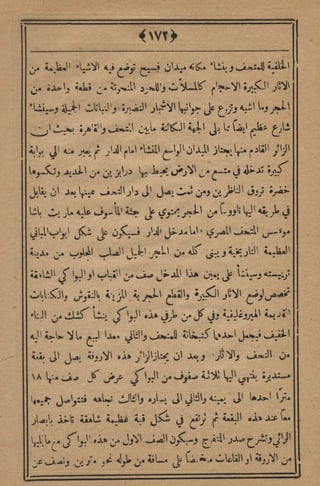 ﴿١٧٢﴾
الخلفية للمتحف وينشاء مكانه ميدان فسيح توضع فيه الاشياء العظيمة من
الاثار الكبيرة الاحجام كالمسلات واللحود المنحوتة من قطعة واحدة من
الحجر وما اشبه وتزرع على جوانبها الاشجار النضيرة والنباتات الجميلة وسينشاء
شارع عظيم ايضاً مما يلى الجهة الكائنة مابين المتحف والقاهرة بحيث ان
الزائر القادم منها يجتاز الميدان الواسع المنشاء امام الدار ثم يعبر منه الى بوابة
كبيرة تدخله في متسع من الارض يحيط بها درابزين من الحديد وتكسوها
خضرة تروق الناظرين ومن ثمت يصل الى دار التحف عينها بعد ان يقابل
في طريقه اليها ناووساً من الحجر يحتوي على جثة المأسوف عليه ماريت باشا
موءسس المتحف المصري . اما مدخل الدار فسيكون على شكل ابواب المباني
العظيمة التاريخية ويبنى كله من الحجر الجميل الصلب المجلوب من مدينة
تريسته وسينشأ على يمين هذا المدخل صف من القباب او البواكي الشاهقة
تخصص لوضع الاثار الكبيرة والقطع الحجرية المزينة بالنقوش والكتابات
القديمة الهيروغليفية وفي كل من طرفي هذه البواكي ينشأ كشك من البناء
الخفيف فيجعل احدهما كتبخانة للمتحف والثاني معدا لبيع مالا حاجة اليه
من التحف والاثار . وبعد ان يجتاز الزائر هذه الاروقة يصل الى بقعة
مستديرة ينتهي اليها ثلاثة صفوف من البواكي عرض كل صف منها ١٨
متراً احدها الى يمينه والثاني الى يساره والثالث تجاهه فتتواصل جميعها
معاً عند هذه البقعة ثم ترتفع في شكل قبة عظيمة شاهقة تاخذ بابصار
الرائي وتشرح صدر المتفرج وسيكون الصف الاول من هذه البواكي مع مايليها
من الاروقة او القاعات منخفضاً على مسافة من طوله نحو مترين ونصف عن